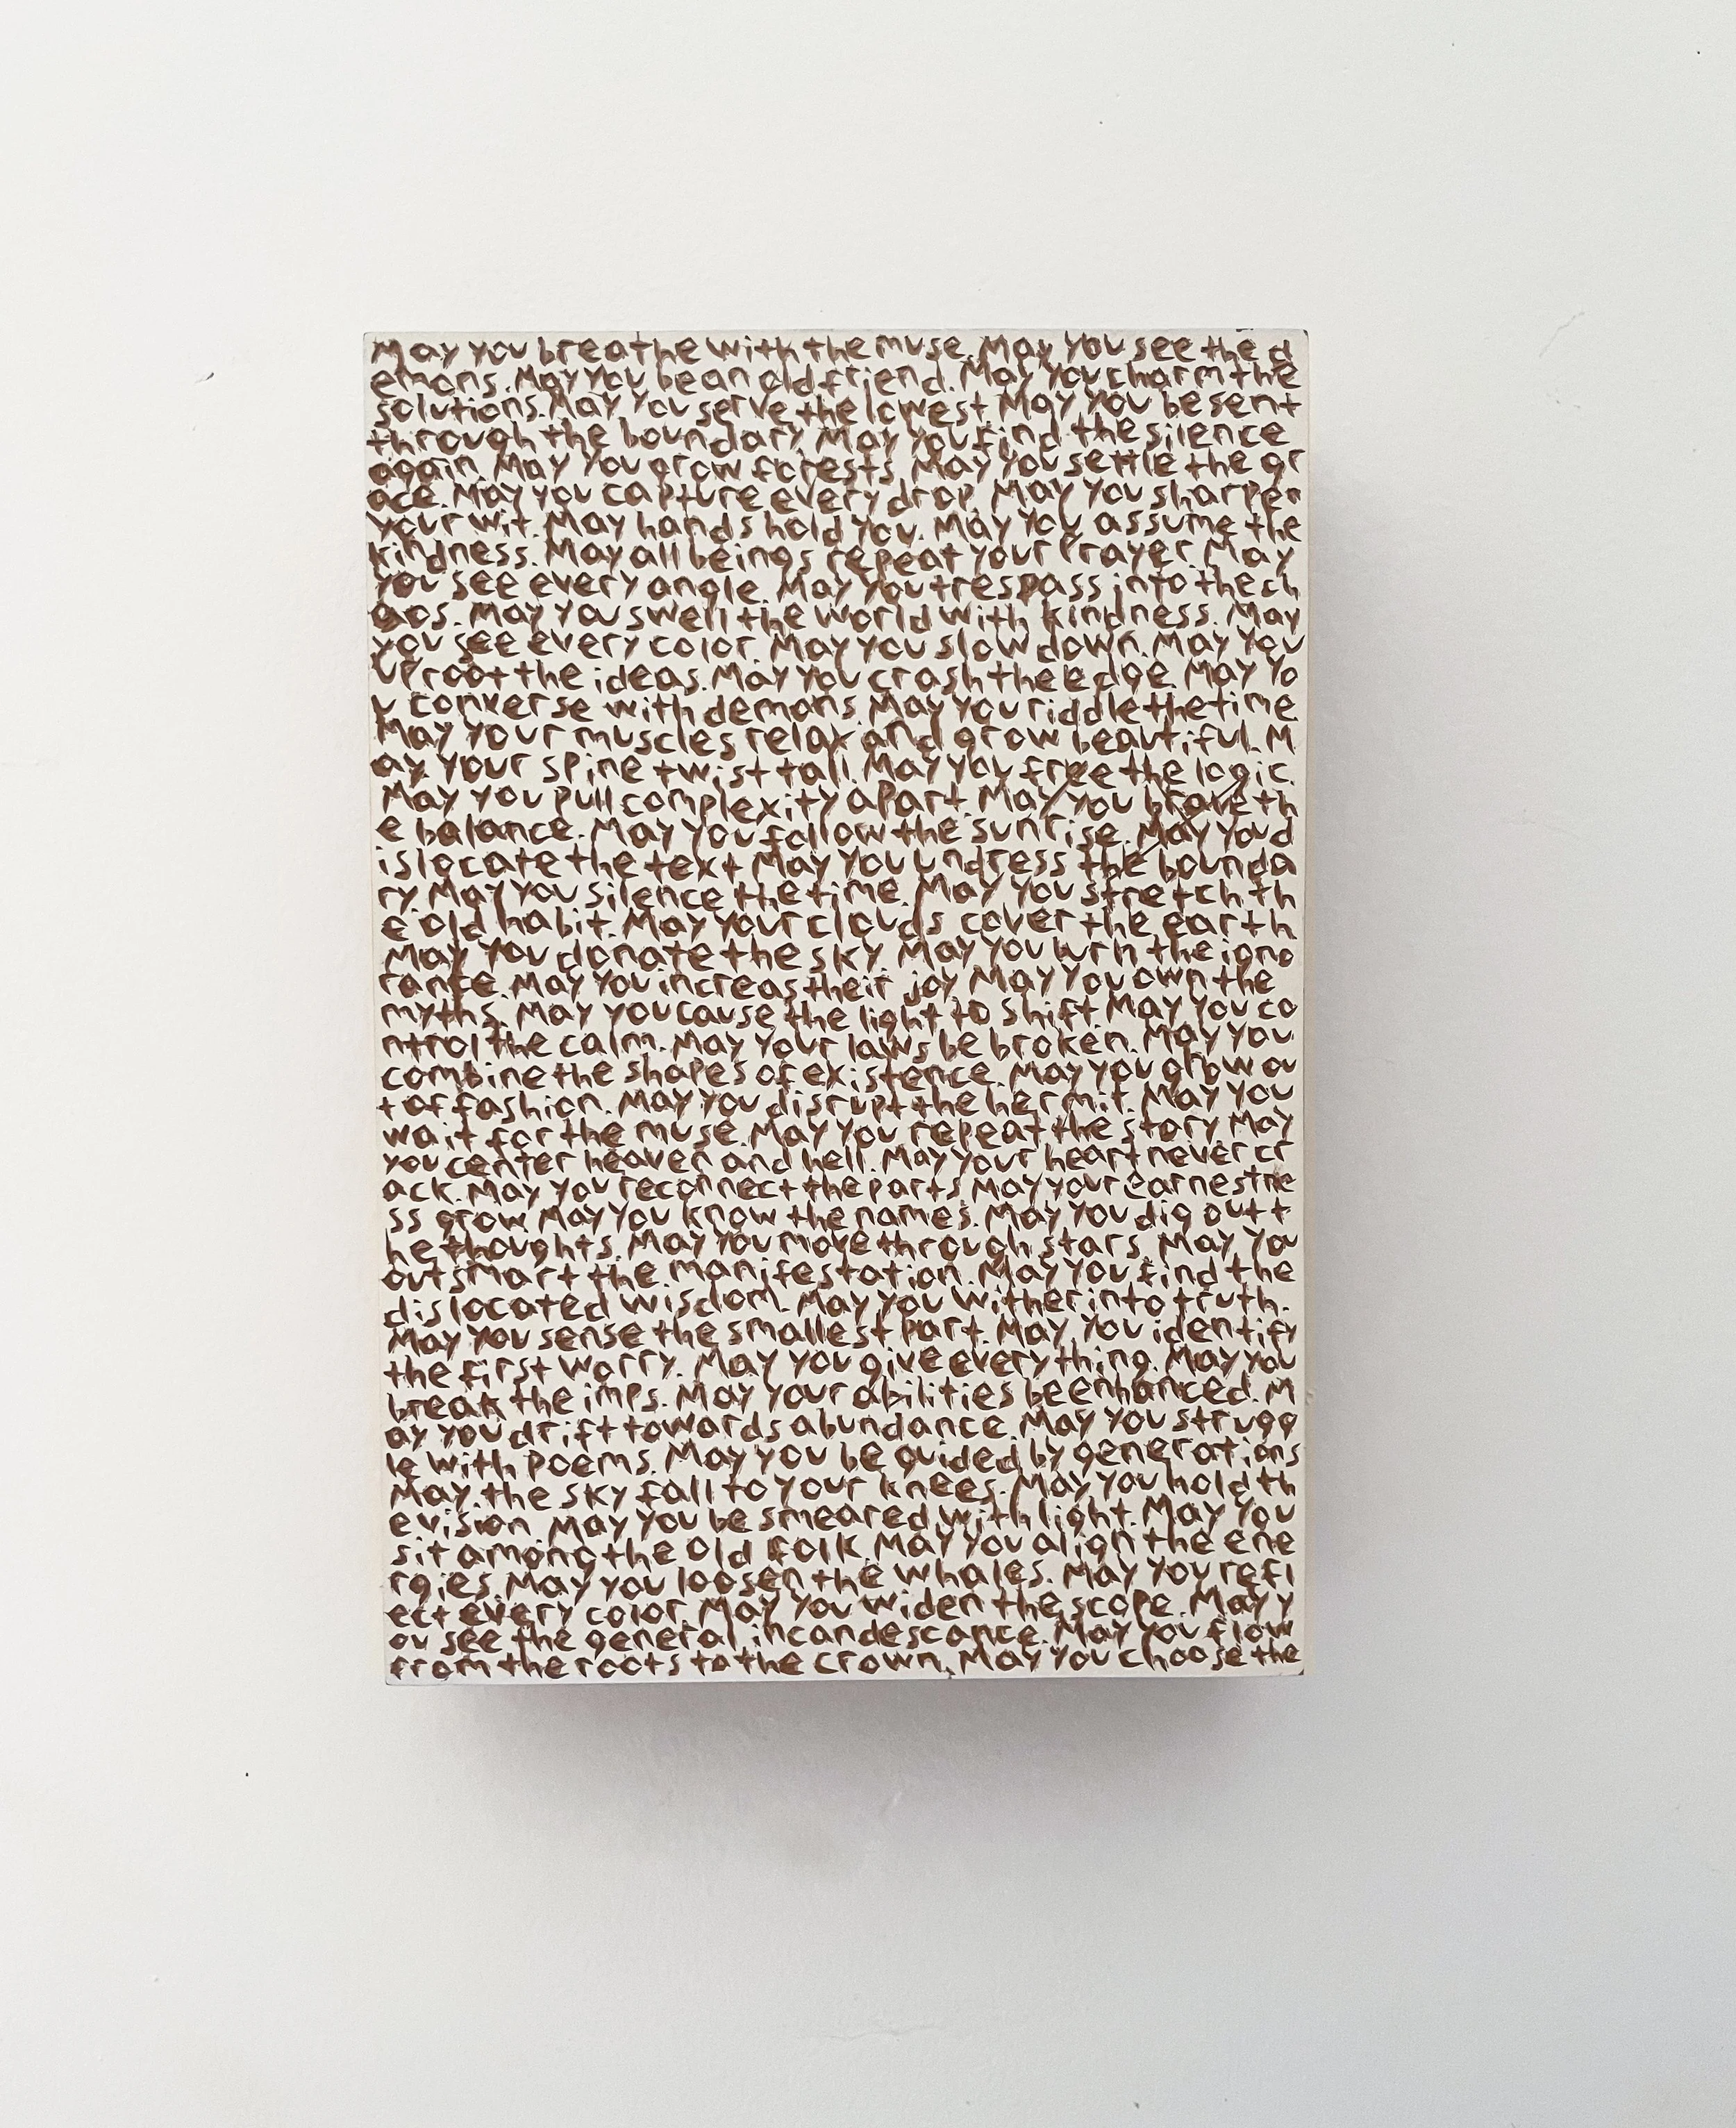 May you breathe with the muse. May you see the d
emons. May you be an old friend. May you charm the
solutions. May you serve the lowest. May you be sent
through the boundary. May you find the silence
again. May you grow forests. May you settle the gr
ace. May you capture every drop. May you sharpen
your wit. May hands hold you. May you assume the
kindness. May all beings repeat your prayer. May
you see every angle. May you trespass into the ch
aos. May you swell the world with kindness. May
you see every color. May you slow down. May you
uproot the ideas. May you crash the edge. May yo
u converse with demons. May you riddle the time.
May your muscles relax and grow beautiful. M
ay your spine twist tall. May you free the logic.
May you pull complexity apart. May you brave th
e balance. May you follow the sunrise. May you d
islocate the text. May you undress the bounda
ry. May you silence the time. May you stretch th
e old habit. May your clouds cover the earth
May you donate the sky. May you burn the igno
rance. May you increas their joy. May you own the
myths. May you cause the light to shift. May you co
ntrol the calm. May your laws be broken. May you
combine the shapes of existence. May you grow ou
t of fashion. May you disrupt the hermit. May you
wait for the muse. May you repeat the story. May
you center heaven and hell. May your heart never cr
ack. May you reconnect the parts. May your earnestne
ss grow. May you know the names. May you dig out t
he thoughts. May you move through stars. May you
outsmart the manifestation. May you find the
dislocated wisdom. May you wither into truth.
May you sense the smallest part. May you identify
the first worry. May you give everything. May you
break the imps. May your abilities be enhanced. M
ay you drift towards abundance. May you strugg
le with poems. May you be guided by generations
May the sky fall to your knees. May you hold th
e vision. May you be smeared with light. May you
sit among the old folk. May you align the ene
rgies. May you loosen the whales. May you refl
ect every color. May you widen the scope. May y
ou see the general incandescance. May you flow
from the roots to the crown. May you choose the